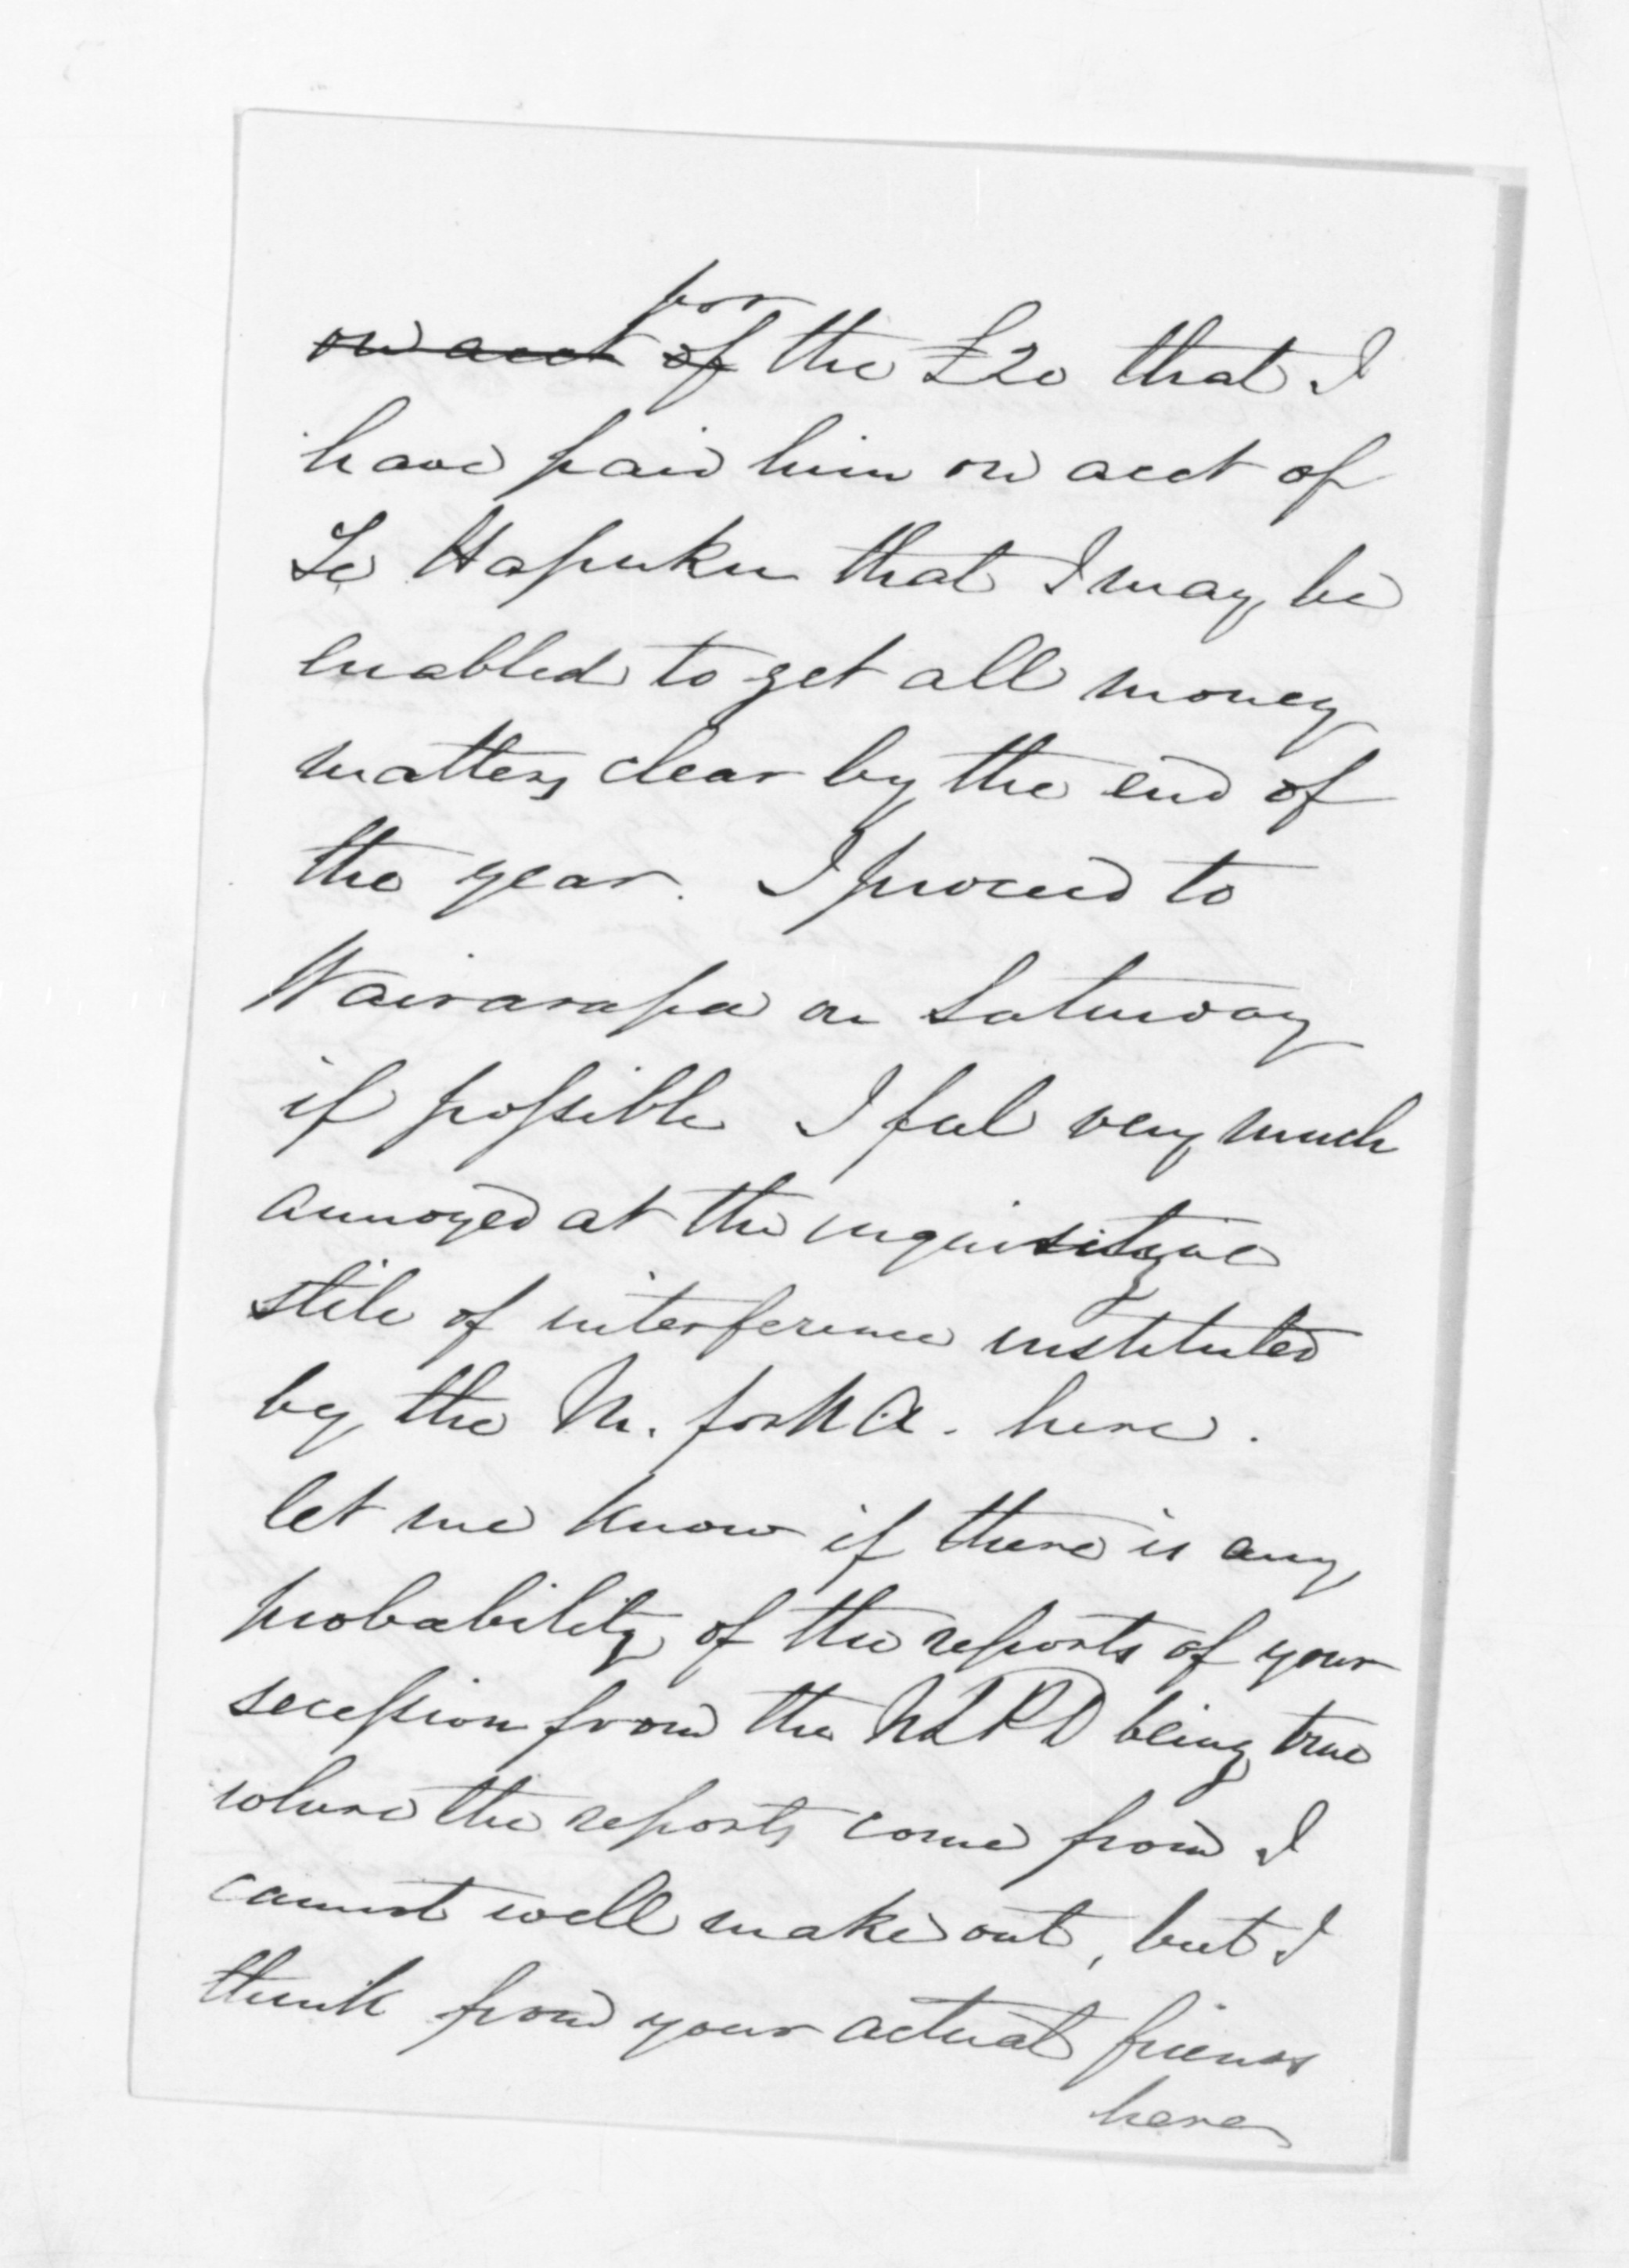 for
on acct of the £20 that I
have paid him on acct of
Te Hapuku that I may be
enabled to get all money
matters clear by the end of
the year. I proceed to
Wairarapa on Saturday
if possible I feel very much
annoyed at the inquisitive
stile of interference instituted
by the M. for N.A. here.
let me know if there is any
probability of the reports of your
secession from the NLPD being true
where the reports come from I
cannot well make out, but I
think from your actual friends
here